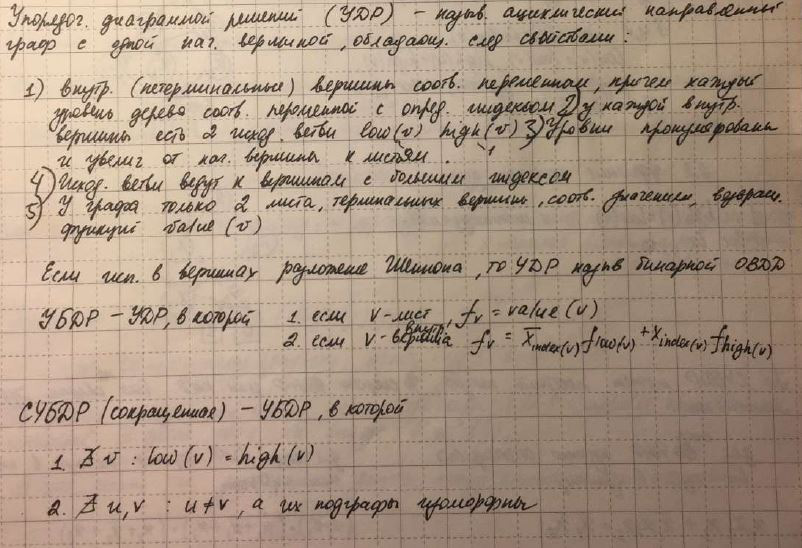 Упорядоч. диаграммой решений (УДР) – назыв. ациклический направленный
граф с одной нач. вершиной, обладающ. след свойствами:
1) внутр. (нетерминальные) вершины соотв. переменным, причем каждый
уровень дерева соотв. переменной с опред. индексом 2) у каждой внутр.
вершины есть 2 исход. ветви low(v) high(v) 3) Уровни пронумерованы
и увелич от нач. вершины к листьям.
4) Исход. ветви ведут к вершинам с большим индексом
5) У графа только 2 листа, терминальных вершины, соотв. значениям, возвращ.
функцией value(v)
Если исп. в вершинах разложение Шеннона, то УДР назыв бинарной OBDD
УБДР – УДР, в которой 1. если v-лист, f_v = value(v)
2. если v-внутр. вершина f_v = x̄_index(v) f_low(v) + x_index(v) f_high(v)
СУБДР (сокращенная) – УБДР, в которой
1. ∄ v : low(v) = high(v)
2. ∄ u,v : u≠v, а их подграфы изоморфны